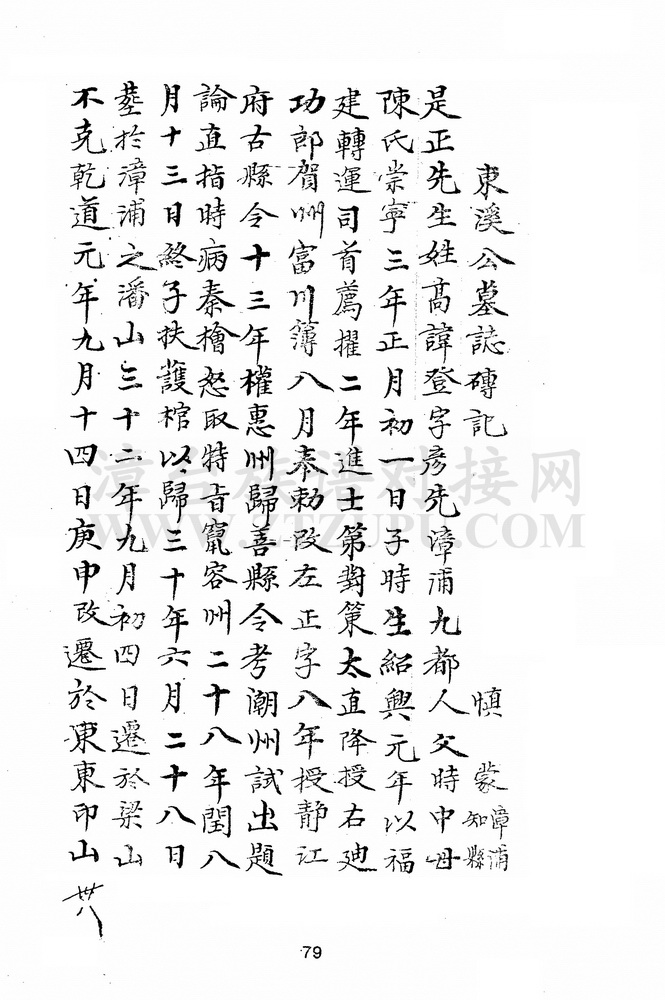 東溪公墓誌磚記　慎蒙漳浦知縣
是正先生姓高諱登字彥先漳浦九都人父時中母
陳氏崇寧三年正月初一日子時生紹興元年以福
建轉運司首薦擢二年進士第對策太直降授右廸
功郎賀州富川簿八月奉勅改左正字八年授靜江
府古縣令十三年權惠州歸善縣令考潮州試出題
論直指時病秦檜怒取特旨竄容州二十八年閏八
月十三日終子扶護棺以歸三十年六月二十八日
塟於漳浦之潘山三十二年九月初四日遷於梁山
不克乾道元年九月十四日庚申改遷於東東印山
漳台族谱对接网
WWW.ZTZUPU.COM
79